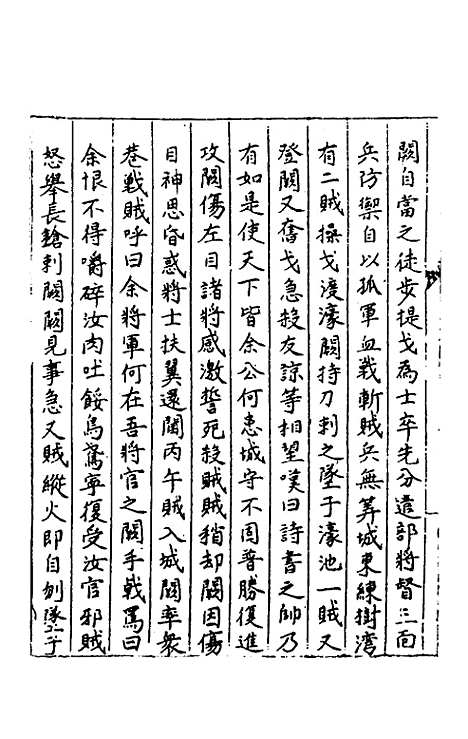 闕自當之徒步提戈為士卒先分遣部將督三面
兵防禦自以孤軍血戰斬賊兵無筭城東練樹湾
有二賊操戈渡濠闕持刀刺之墜于濠池一賊又
登闕又奪戈急殺友諒等相望嘆曰詩書之帥乃
有如是使天下皆余公何患城守不固普勝復進
攻闕傷左目諸將感激誓死殺賊賊稍却闕因傷
目神思昏惑將士扶翼還闔丙午賊入城闕率衆
巷戰賊呼曰余將軍何在吾將官之闕手戟罵曰
余恨不得嚼碎汝肉吐餧烏鳶寧復受汝官邪賊
怒舉長鎗刺闕闕見事急又賊縱火即自刎隊